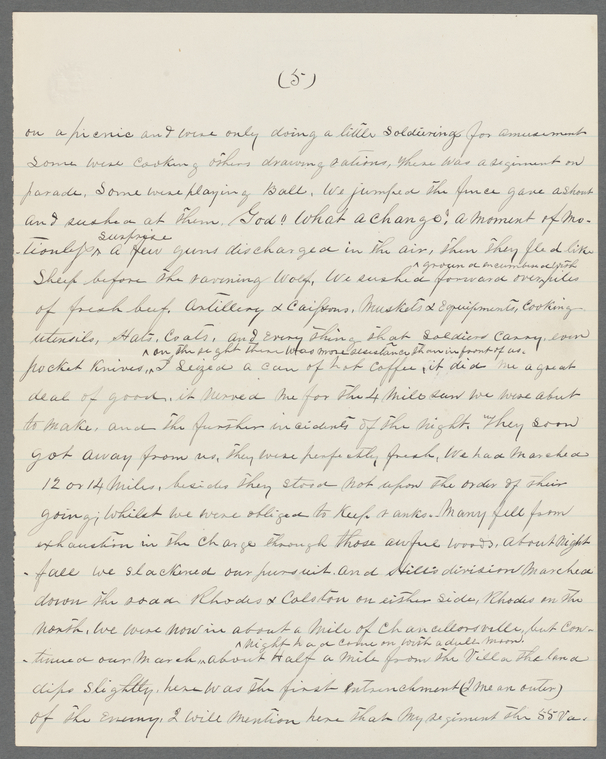 (5)
on a picnic and were only doing a little soldiering for amusement
Some were cooking others drawing rations, there was a regiment on
parade. Some were playing Ball. We jumped the fence gave a shout
and rushed at them. God! What a change! a moment of mo-
surprise
-tionless ^ a few guns discharged in the air, then they fled like
^ ground encumbered with
Sheep before the ravening Wolf. We rushed forward over piles
of fresh beef, Artillery & Caissons, Muskets & Equipments, Cooking
utensils, Hats, Coats, and Every thing that Soldiers Carry, even
^ on the right there was more resistance than in front of us.
pocket Knives, ^ I seized a can of hot Coffee, it did me a great
deal of good, it nerved me for the 4 Mile run we were about
to make, and the further incidents of the night. They soon
got away from us, they were perfectly fresh, We had Marched
12 or 14 Miles, besides they stood not upon the order of their
going; whilst we were obliged to Keep ranks. Many fell from
exhaustion in the Charge through those awful woods. about Night
-fall we slackened our pursuit. and Hill's division Marched
down the road Rhodes & Colston on either Side, Rhodes on the
North, We were now in about a Mile of Chancellorsville, but Con-
^ Night had come on with a dull moon.
-tinued our March ^ about Half a Mile from the Villa the land
dips Slightly, here was the first entrenchment (I mean outer)
of the Enemy. I will Mention here that My regiment the 55 Va.